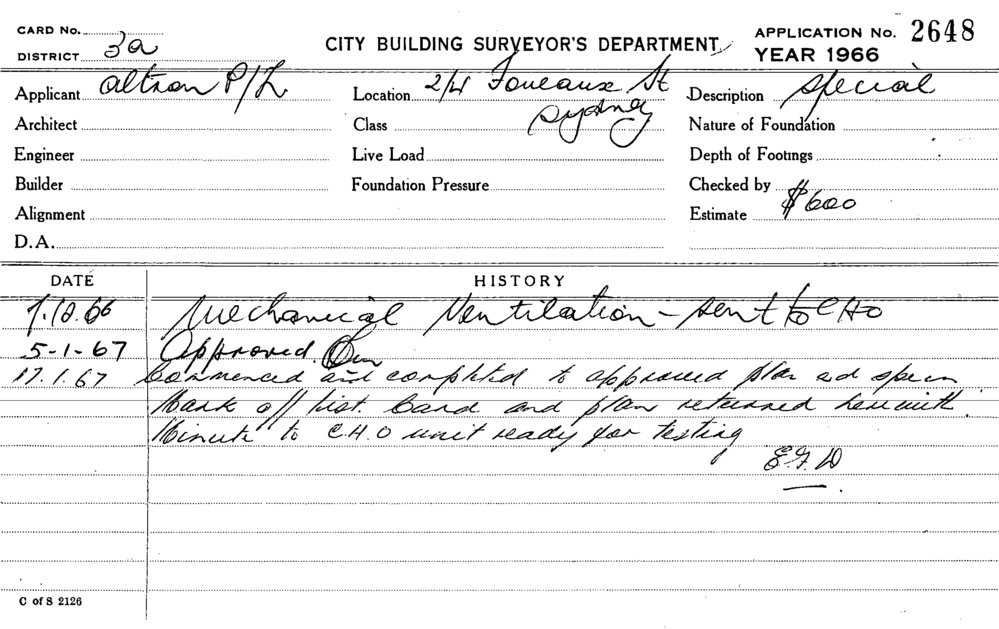 CARD No.
DISTRICT 3a
CITY BUILDING SURVEYOR'S DEPARTMENT
APPLICATION No. 2648
YEAR 1966
Applicant Altron P/L
Location 2/4 Foveaux St
Sydney
Description Special
Architect
Class
Nature of Foundation
Engineer
Live Load
Depth of Footings
Builder
Foundation Pressure
Checked by
Alignment
Estimate $600
D.A.
DATE HISTORY
7.10.66 Mechanical Ventilation - sent to CHO
5-1-67 Approved.
17.1.67 Commenced and completed to approved plan and specn
Mark off list. Card and plan returned herewith.
Minute to C.H.O unit ready for testing
E.F.D
C of S 2126